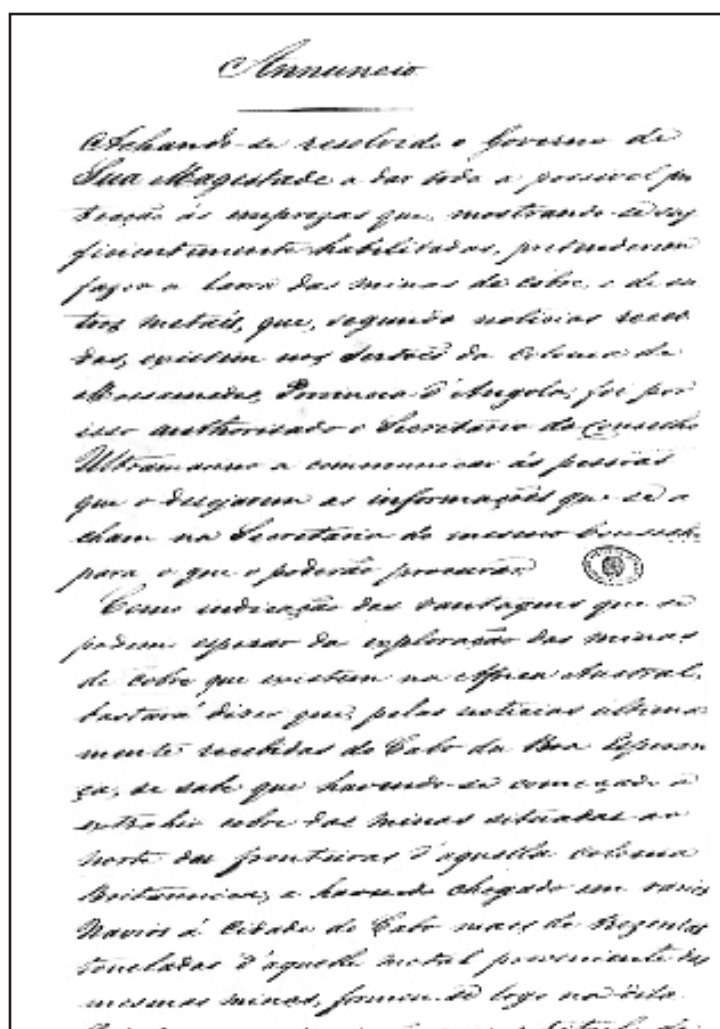 Annuncio
Achando-se resolvido o Governo de
Sua Magestade a dar toda a possivel pro
tecção ás emprezas que, mostrando-se suf
ficientemente habilitadas, pretenderem
fazer a lavra das minas de cobre, e de ou
tros metais, que, segundo noticias rece
das, existem nos Sertões da Colonia de
Mossamedes, Provincia d'Angola; foi por
isso authorisado o Secretario do Conselho
Ultramarino a communicar ás pessoas
que o desejarem as informações que se a
cham na Secretaria do mesmo Conselho,
para o que o poderão procurar.
Como indicação das vantagens que se
podem esperar da exploração das minas
de cobre que existem na Africa Austral,
bastará dizer que, pelas noticias ultima
mente recebidas do Cabo da Boa Esperan
ça, se sabe que havendo-se começado a
extrahir cobre das minas situadas ao
norte das fronteiras d'aquella colonia
Britannica, e havendo chegado em varios
Navios á Cidade do Cabo mais de trezentas
toneladas d'aquelle metal proveniente das
mesmas minas, formou-se logo na dita